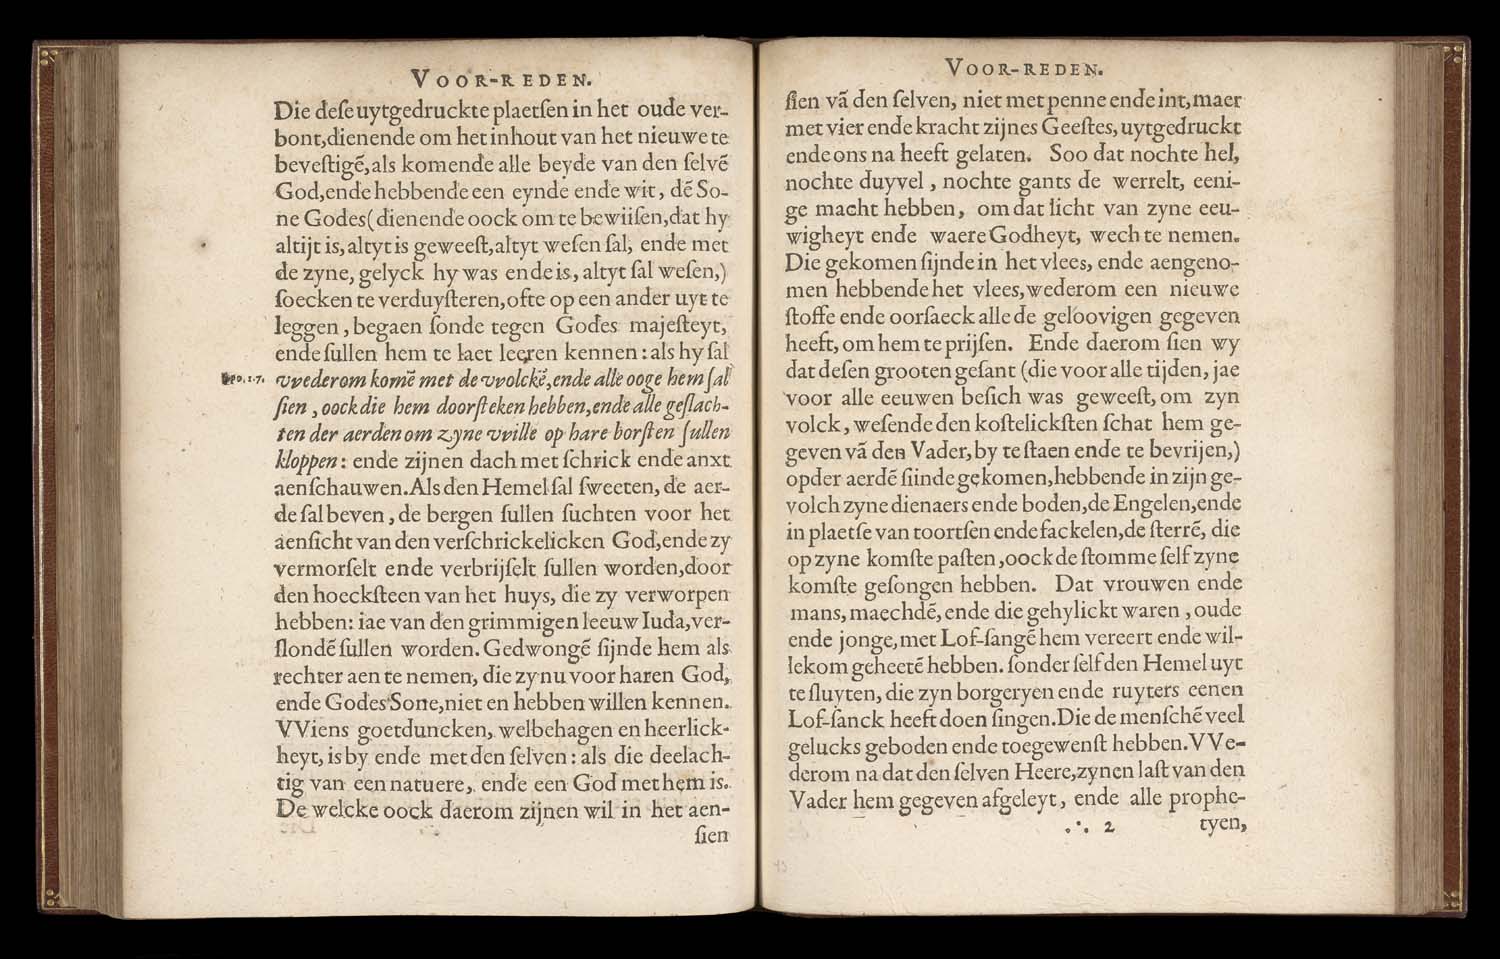 VOOR-REDEN.
Die deſe uytgedruckte plaetſen in het oude ver-
bont, dienende om het inhout van het nieuwe te
beveſtigẽ, als komende alle beyde van den ſelvẽ
God, ende hebbende een eynde ende wit, dẽ So-
ne Godes (dienende oock om te bewiiſen, dat hy
altijt is, altyt is geweeſt, altyt weſen ſal, ende met
de zyne, gelyck hy was ende is, altyt ſal weſen,)
ſoecken te verduyſteren, ofte op een ander uyt te
leggen, begaen ſonde tegen Godes majeſteyt,
ende ſullen hem te laet leeren kennen: als hy ſal
vvederom komẽ met de vvolckẽ, ende alle ooge hem ſal
ſien, oock die hem doorſteken hebben, ende alle geſlach-
ten der aerden om zyne vville op hare borſten ſullen
kloppen: ende zijnen dach met ſchrick ende anxt
aenſchauwen. Als den Hemel ſal ſweeten, de aer-
de ſal beven, de bergen ſullen ſuchten voor het
aenſicht van den verſchrickelicken God, ende zy
vermorſelt ende verbrijſelt ſullen worden, door
den hoeckſteen van het huys, die zy verworpen
hebben: iae van den grimmigen leeuw Iuda, ver-
ſlondẽ ſullen worden. Gedwongẽ ſijnde hem als
rechter aen te nemen, die zy nu voor haren God,
ende Godes Sone, niet en hebben willen kennen.
VViens goetduncken, welbehagen en heerlick-
heyt, is by ende met den ſelven: als die deelach-
tig van een natuere, ende een God met hem is.
De welcke oock daerom zijnen wil in het aen-
ſien
VOOR-REDEN.
ſien vã den ſelven, niet met penne ende int, maer
met vier ende kracht zijnes Geeſtes, uytgedruckt
ende ons na heeft gelaten. Soo dat nochte hel,
nochte duyvel, nochte gants de werrelt, eeni-
ge macht hebben, om dat licht van zyne eeu-
wigheyt ende waere Godheyt, wech te nemen.
Die gekomen ſijnde in het vlees, ende aengeno-
men hebbende het vlees, wederom een nieuwe
ſtoffe ende oorſaeck alle de geloovigen gegeven
heeft, om hem te prijſen. Ende daerom ſien wy
dat deſen grooten geſant (die voor alle tijden, jae
voor alle eeuwen beſich was geweeſt, om zyn
volck, weſende den koſtelickſten ſchat hem ge-
geven vã den Vader, by te ſtaen ende te bevrijen,)
op der aerdẽ ſiinde gekomen, hebbende in zijn ge-
volch zyne dienaers ende boden, de Engelen, ende
in plaetſe van toortſen ende fackelen, de ſterrẽ, die
op zyne komſte paſten, oock de ſtomme ſelf zyne
komſte geſongen hebben. Dat vrouwen ende
mans, maechdẽ, ende die gehylickt waren, oude
ende jonge, met Lof-ſangẽ hem vereert ende wil-
lekom geheetẽ hebben. ſonder ſelf den Hemel uyt
te ſluyten, die zyn borgeryen ende ruyters eenen
Lof-ſanck heeft doen ſingen. Die de menſchẽ veel
gelucks geboden ende toegewenſt hebben. VVe-
derom na dat den ſelven Heere, zynen laſt van den
Vader hem gegeven afgeleyt, ende alle prophe-
2
tyen,